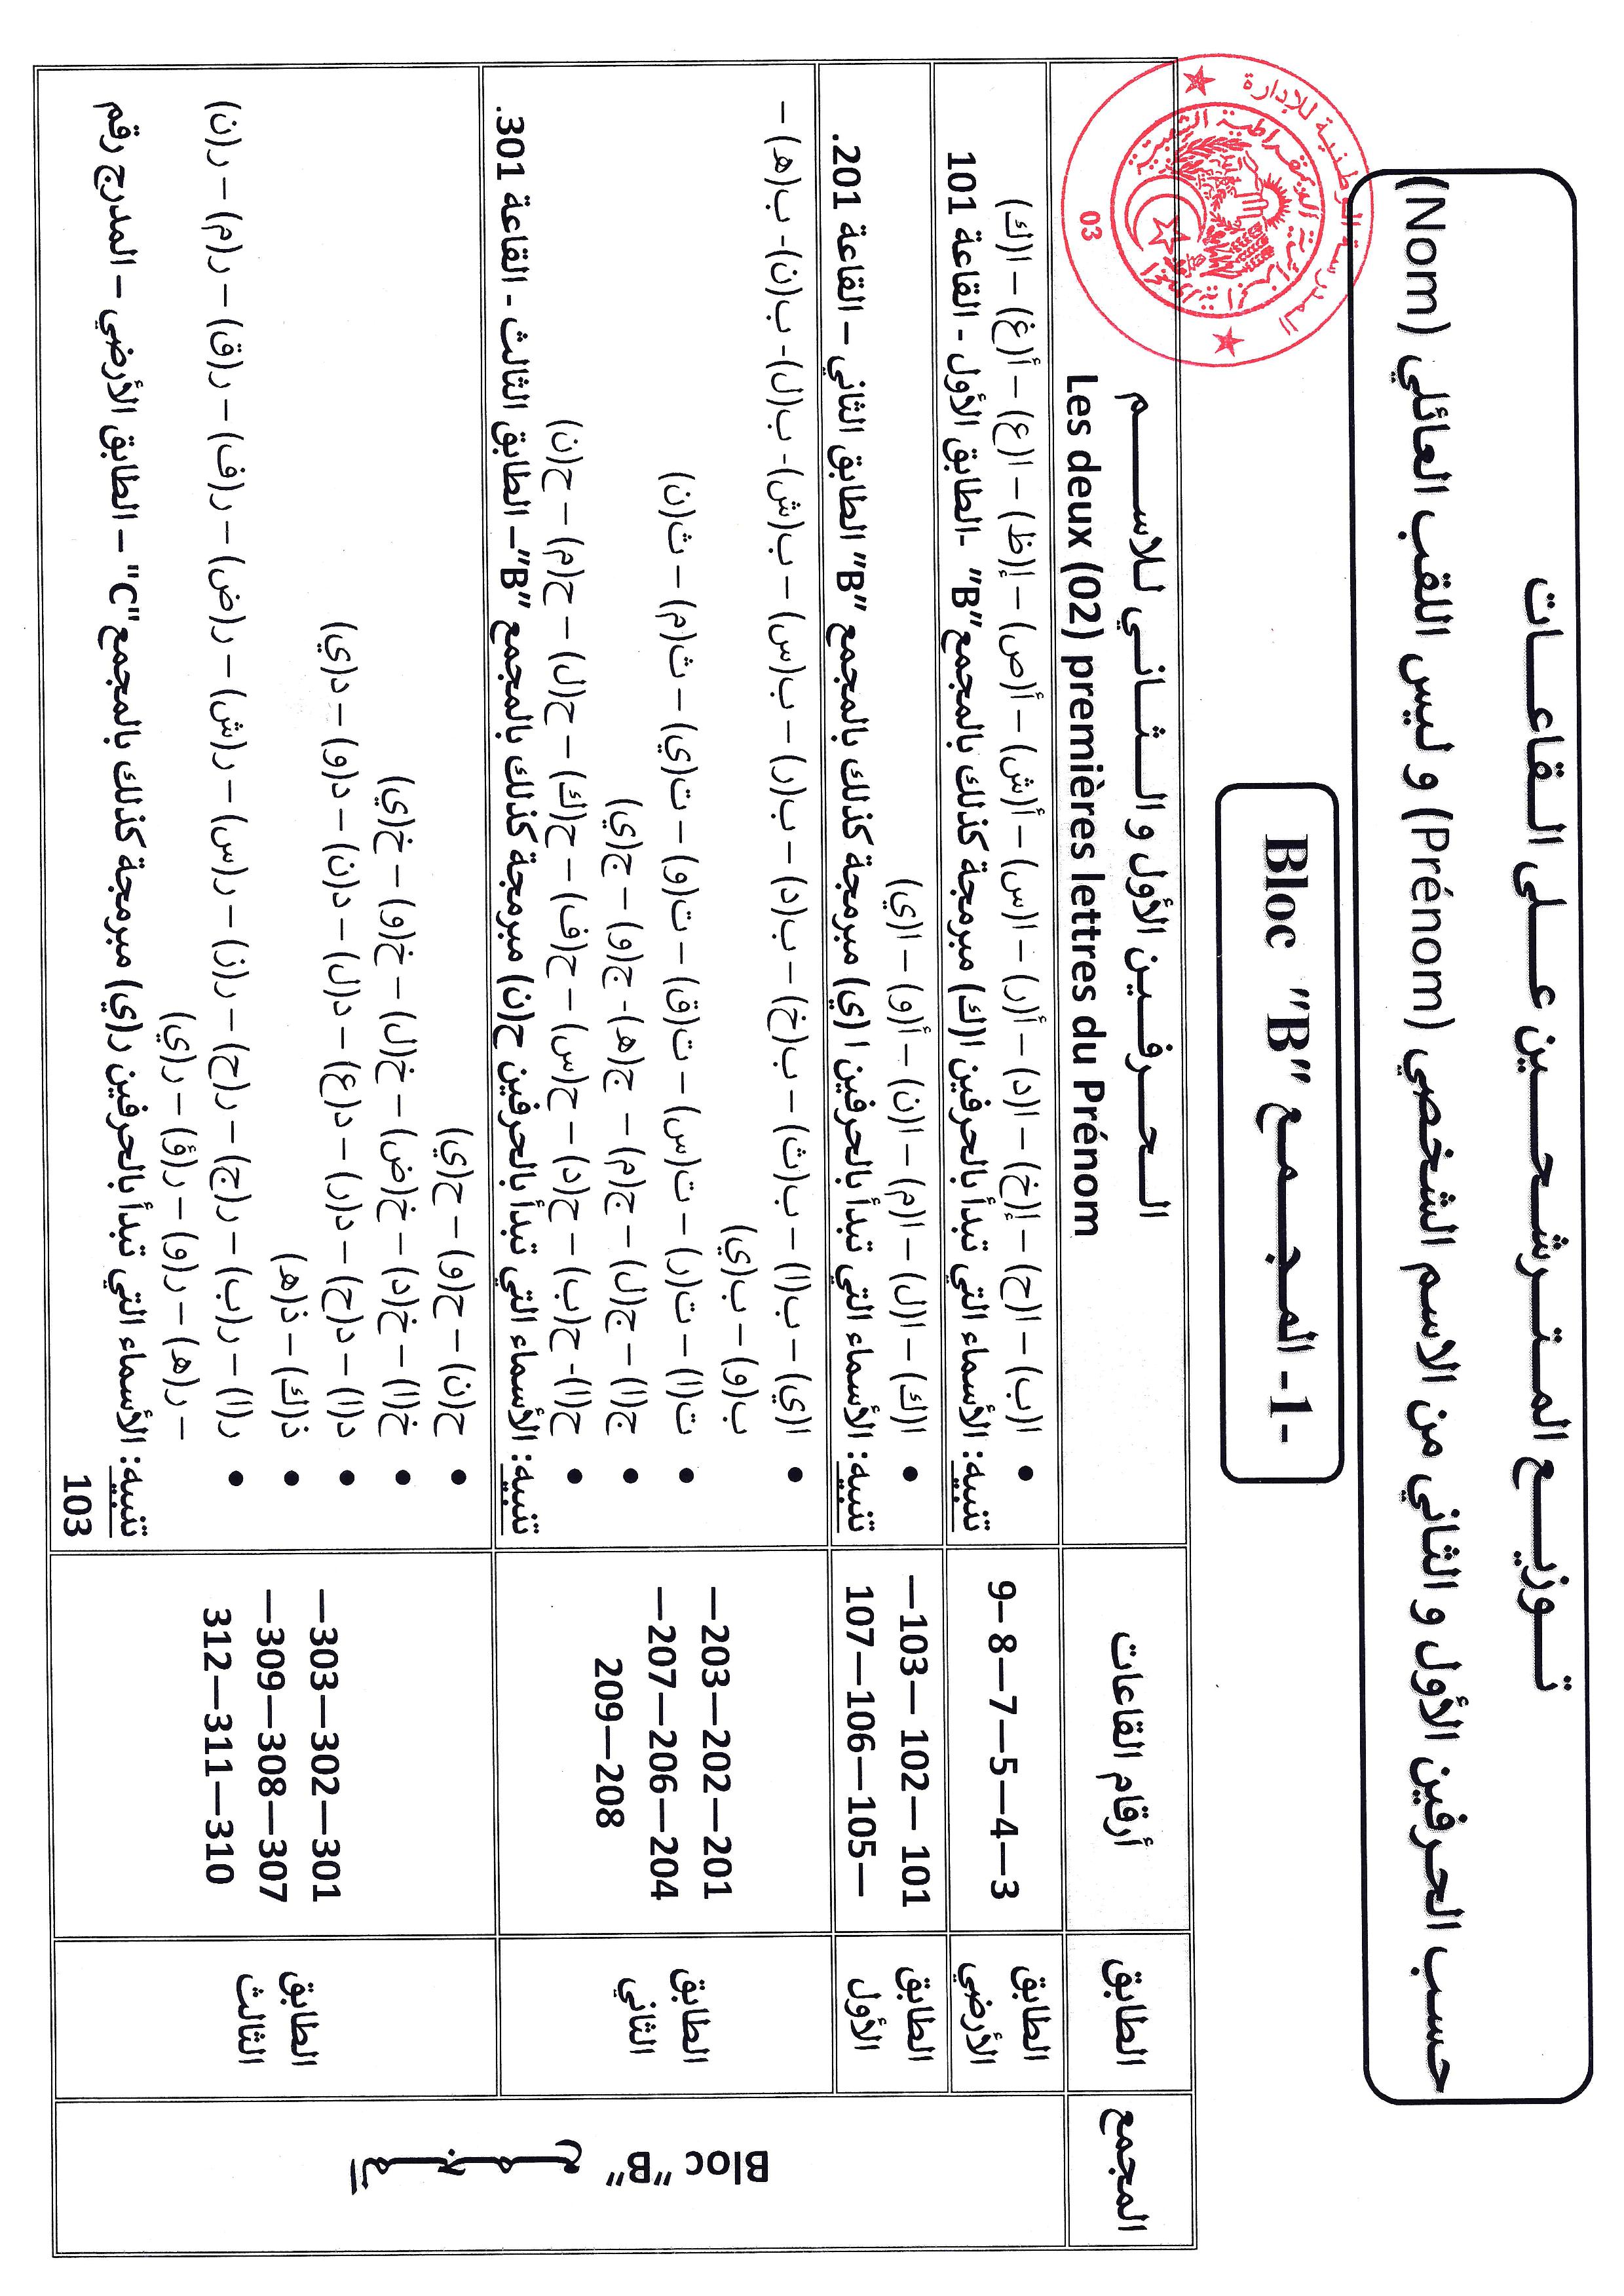 تـــوزيـــع المـــتـــرشـــحـــين عـــلى الـــقـــاعـــات
حسب الحرفين الأول و الثاني من الاسم الشخصي (Prénom) و ليس اللقب العائلي (Nom)
-1- المـجـــمـع Bloc "B"
المجمع
الطابق
أرقام القاعات
الـحـــرفـــين الأول و الـــثـــانـي لـلاســـــم
Les deux (02) premières lettres du Prénom
Bloc "B" مـــجـــمـــع
الطابق
الأرضي
3—4—5—7—8 –9
• ا(ب) – ا(ح) – إ(خ) – ا(د) – أ(ر) – ا(س) – أ(ش) – أ(ص) – إ(ظ) – ا(ع) – أ(غ) – ا(ك)
تنبيه: الأسماء التي تبدأ بالحرفين ا(ك) مبرمجة كذلك بالمجمع"B" -الطابق الأول - القاعة 101
الطابق
الأول
101 —102 —103—
—105—106—107
• ا(ك) – ا(ل) – ا(م) – ا(ن) – أ(و) – ا(ي)
تنبيه: الأسماء التي تبدأ بالحرفين ا (ي) مبرمجة كذلك بالمجمع "B" الطابق الثاني – القاعة 201.
الطابق
الثاني
201—202—203—
204—206—207—
208—209
• ا(ي) – ب(ا) – ب(ث) – ب(خ) – ب(د) – ب(ر) – ب(س) – ب(ش)- ب(ل)- ب(ن)- ب(ه) –
ب(و) – ب(ي)
• ت(ا) – ت(ر) – ت(س) – ت(ق) – ت(و) – ت(ي) – ث(م) – ث(ن)
• ج(ا) – ج(ل) – ج(م) – ج(ه)- ج(و) – ج(ي)
• ح(ا)- ح(ب) – ح(د) – ح(س) – ح(ف) – ح(ك) – ح(ل) – ح(م) – ح(ن)
تنبيه: الأسماء التي تبدأ بالحرفين ح(ن) مبرمجة كذلك بالمجمع "B"– الطابق الثالث - القاعة 301.
الطابق
الثالث
301—302—303—
307—308—309—
310—311—312
• ح(ن) – ح(و) – ح(ي)
• خ(ا) – خ(د) – خ(ض) – خ(ل) – خ(و) – خ(ي)
• د(ا) – د(ح) – د(ر) – د(ع) – د(ل) – د(ن) – د(و) – د(ي)
• ذ(ك) – ذ(ه)
• ر(ا) – ر(ب) – ر(ج) – ر(ح) – ر(ز) – ر(س) – ر(ش) – ر(ض) – ر(ف) – ر(ق) – ر(م) – ر(ن)
– ر(ه) – ر(و) – ر(ؤ) – ر(ي)
تنبيه: الأسماء التي تبدأ بالحرفين ر(ي) مبرمجة كذلك بالمجمع"C" – الطابق الأرضي – المدرج رقم
103
المدرسة الوطنية للإدارة
الجمهورية الجزائرية الديمقراطية الشعبية
03